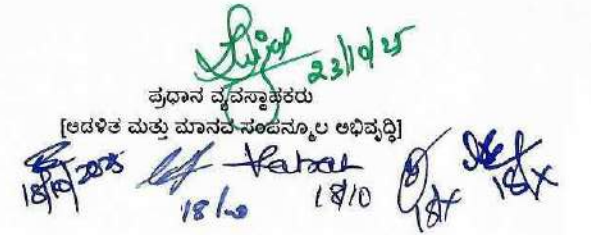 23/10/25
ಪ್ರಧಾನ ವ್ಯವಸ್ಥಾಪಕರು
[ಆಡಳಿತ ಮತ್ತು ಮಾನವ ಸಂಪನ್ಮೂಲ ಅಭಿವೃದ್ಧಿ]
18/10/2025 18/10 18/10 18/X 18/X